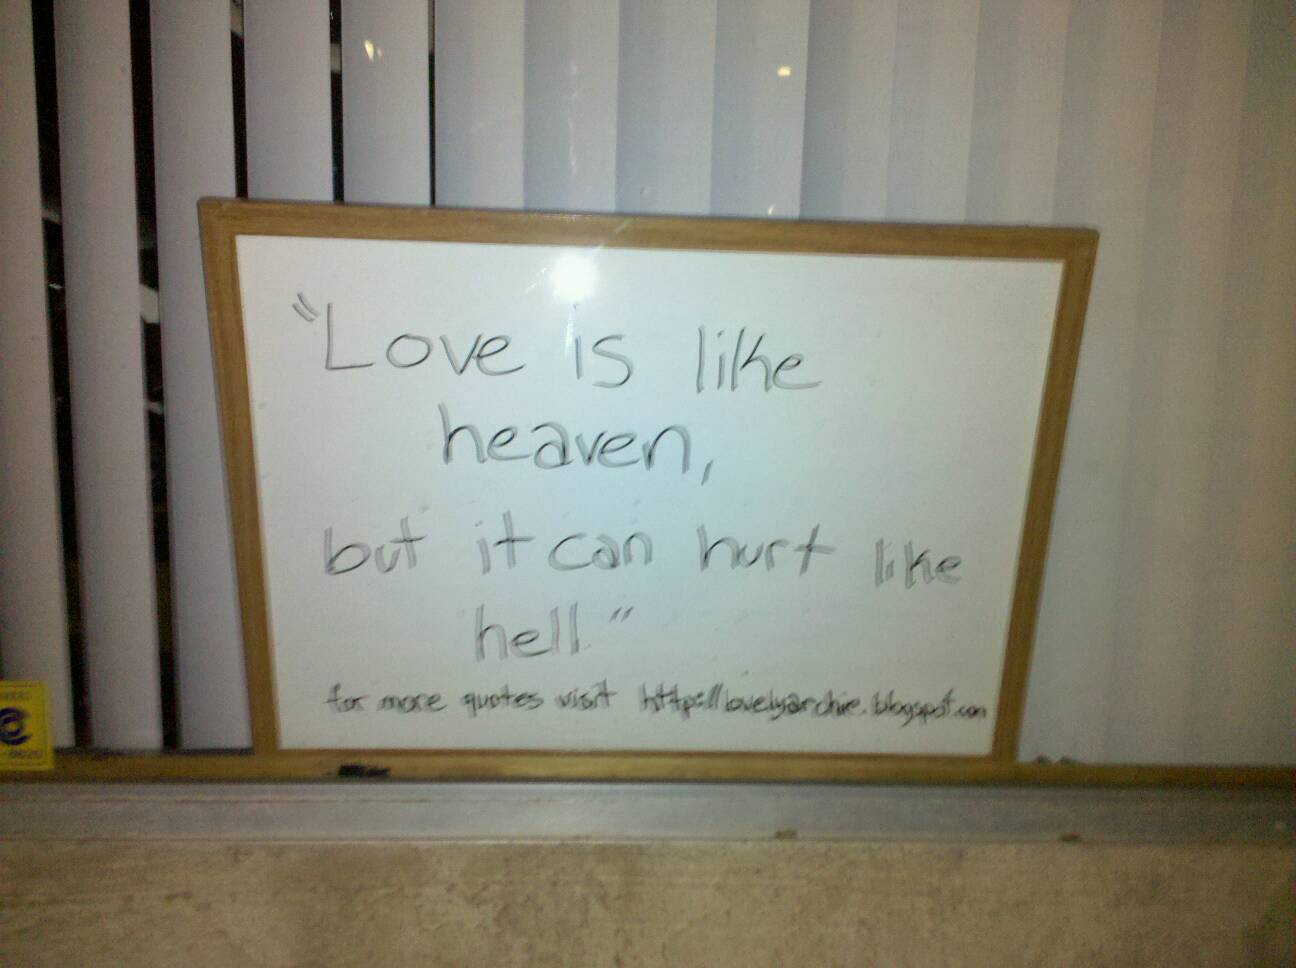 "Love is like
heaven,
but it can hurt like
hell"
for more quotes visit http://lovelyarchie.blogspot.com